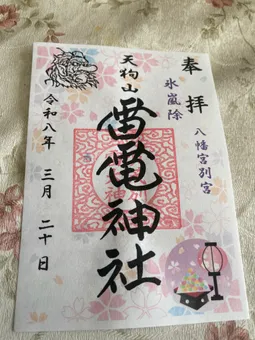 奉拝
氷嵐除
八幡宮別宮
天狗山
雷電神社
令和八年 三月 二十日